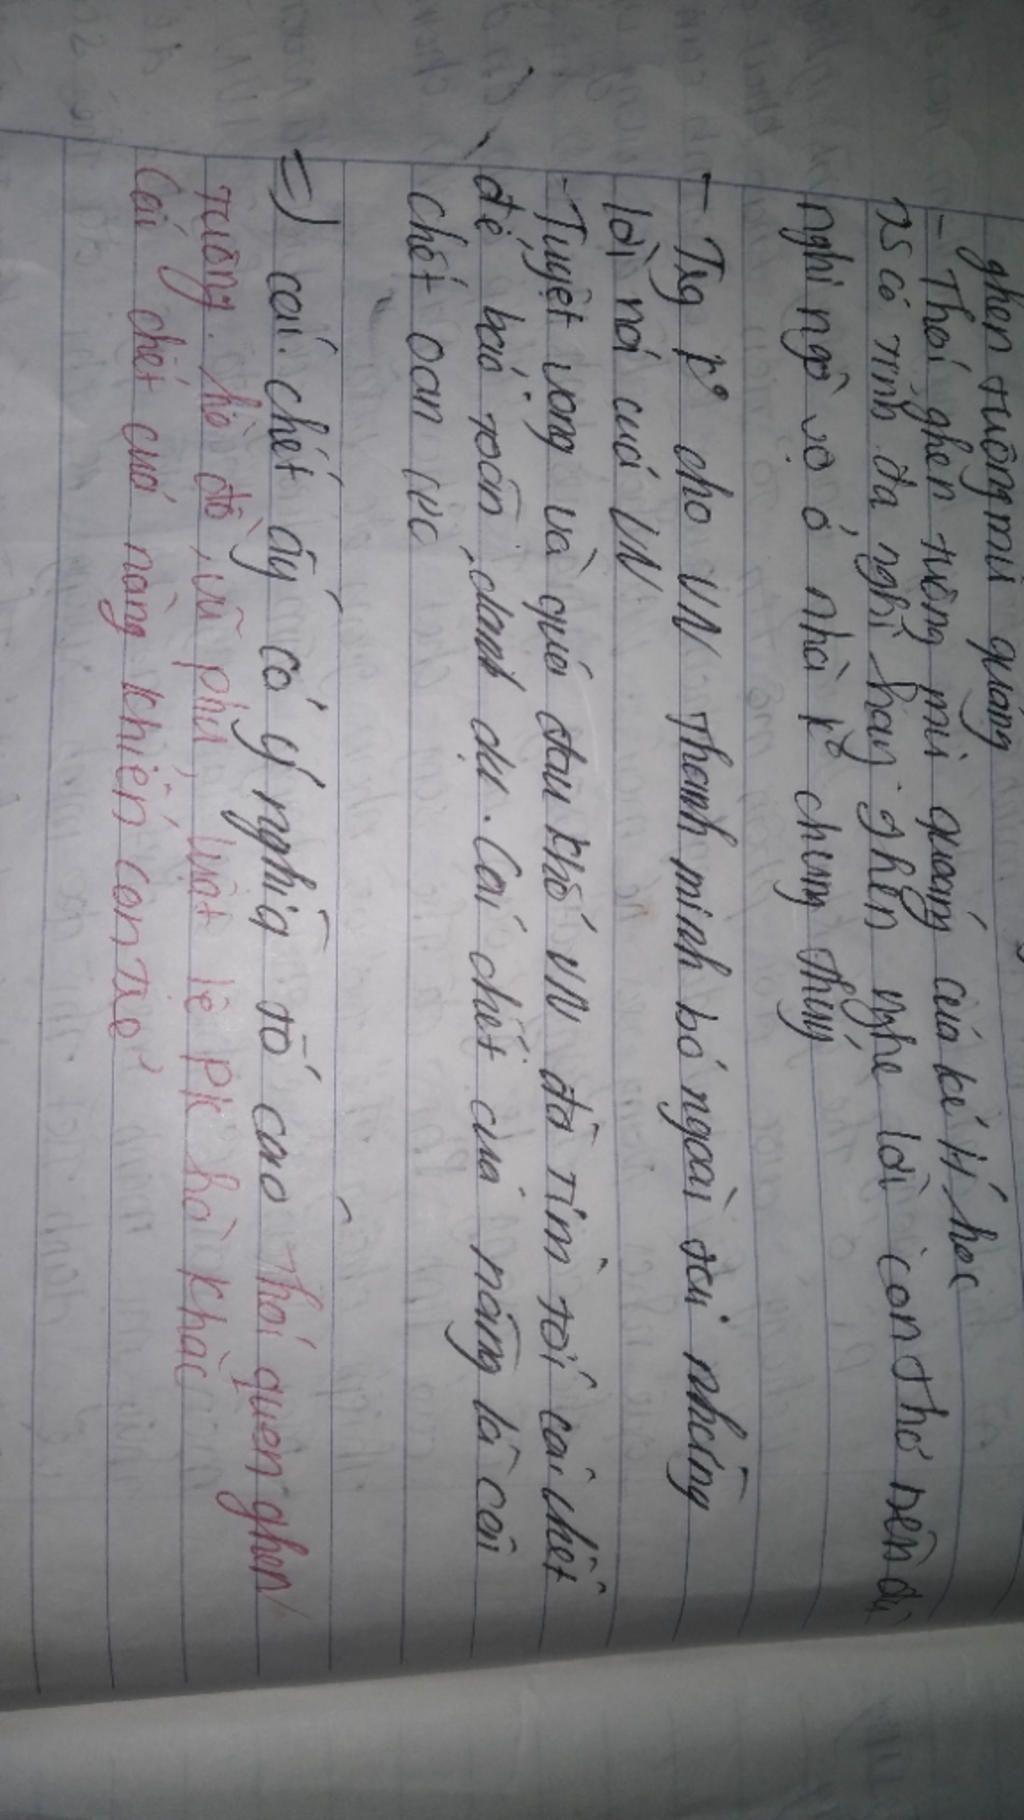 ghen tuông mù quáng
- Thói ghen tuông mù quáng của kẻ ít học
TS có tính đa nghi hay ghen nghe lời con thơ nên đã
nghi ngờ vợ ở nhà k° chung thủy
- Trg k° cho VN thanh minh bỏ ngoài tai những
lời nói của VN
- Tuyệt vọng và quá đau khổ VN đã tìm tới cái chết
để bảo toàn danh dự. Cái chết của nàng là cái
chết oan ức
=> cái chết ấy có ý nghĩa tố cáo thói quen ghen
tuông. hồ đồ, vũ phu, luật lệ PK hà khắc
Cái chết của nàng khiến con trẻ